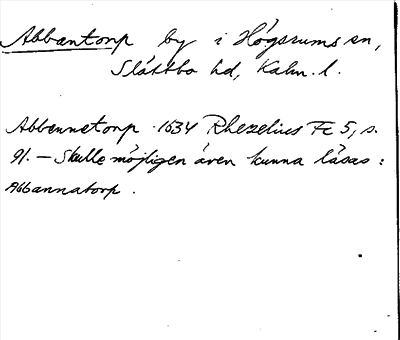 Abbantorp by i Högsrums sn,
Slättbo hd, Kalm. l.
Abbennetorp 1634 Rhezelius Fc 5, s.
91. — Skulle möjligen även kunna läsas:
Abbannatorp.